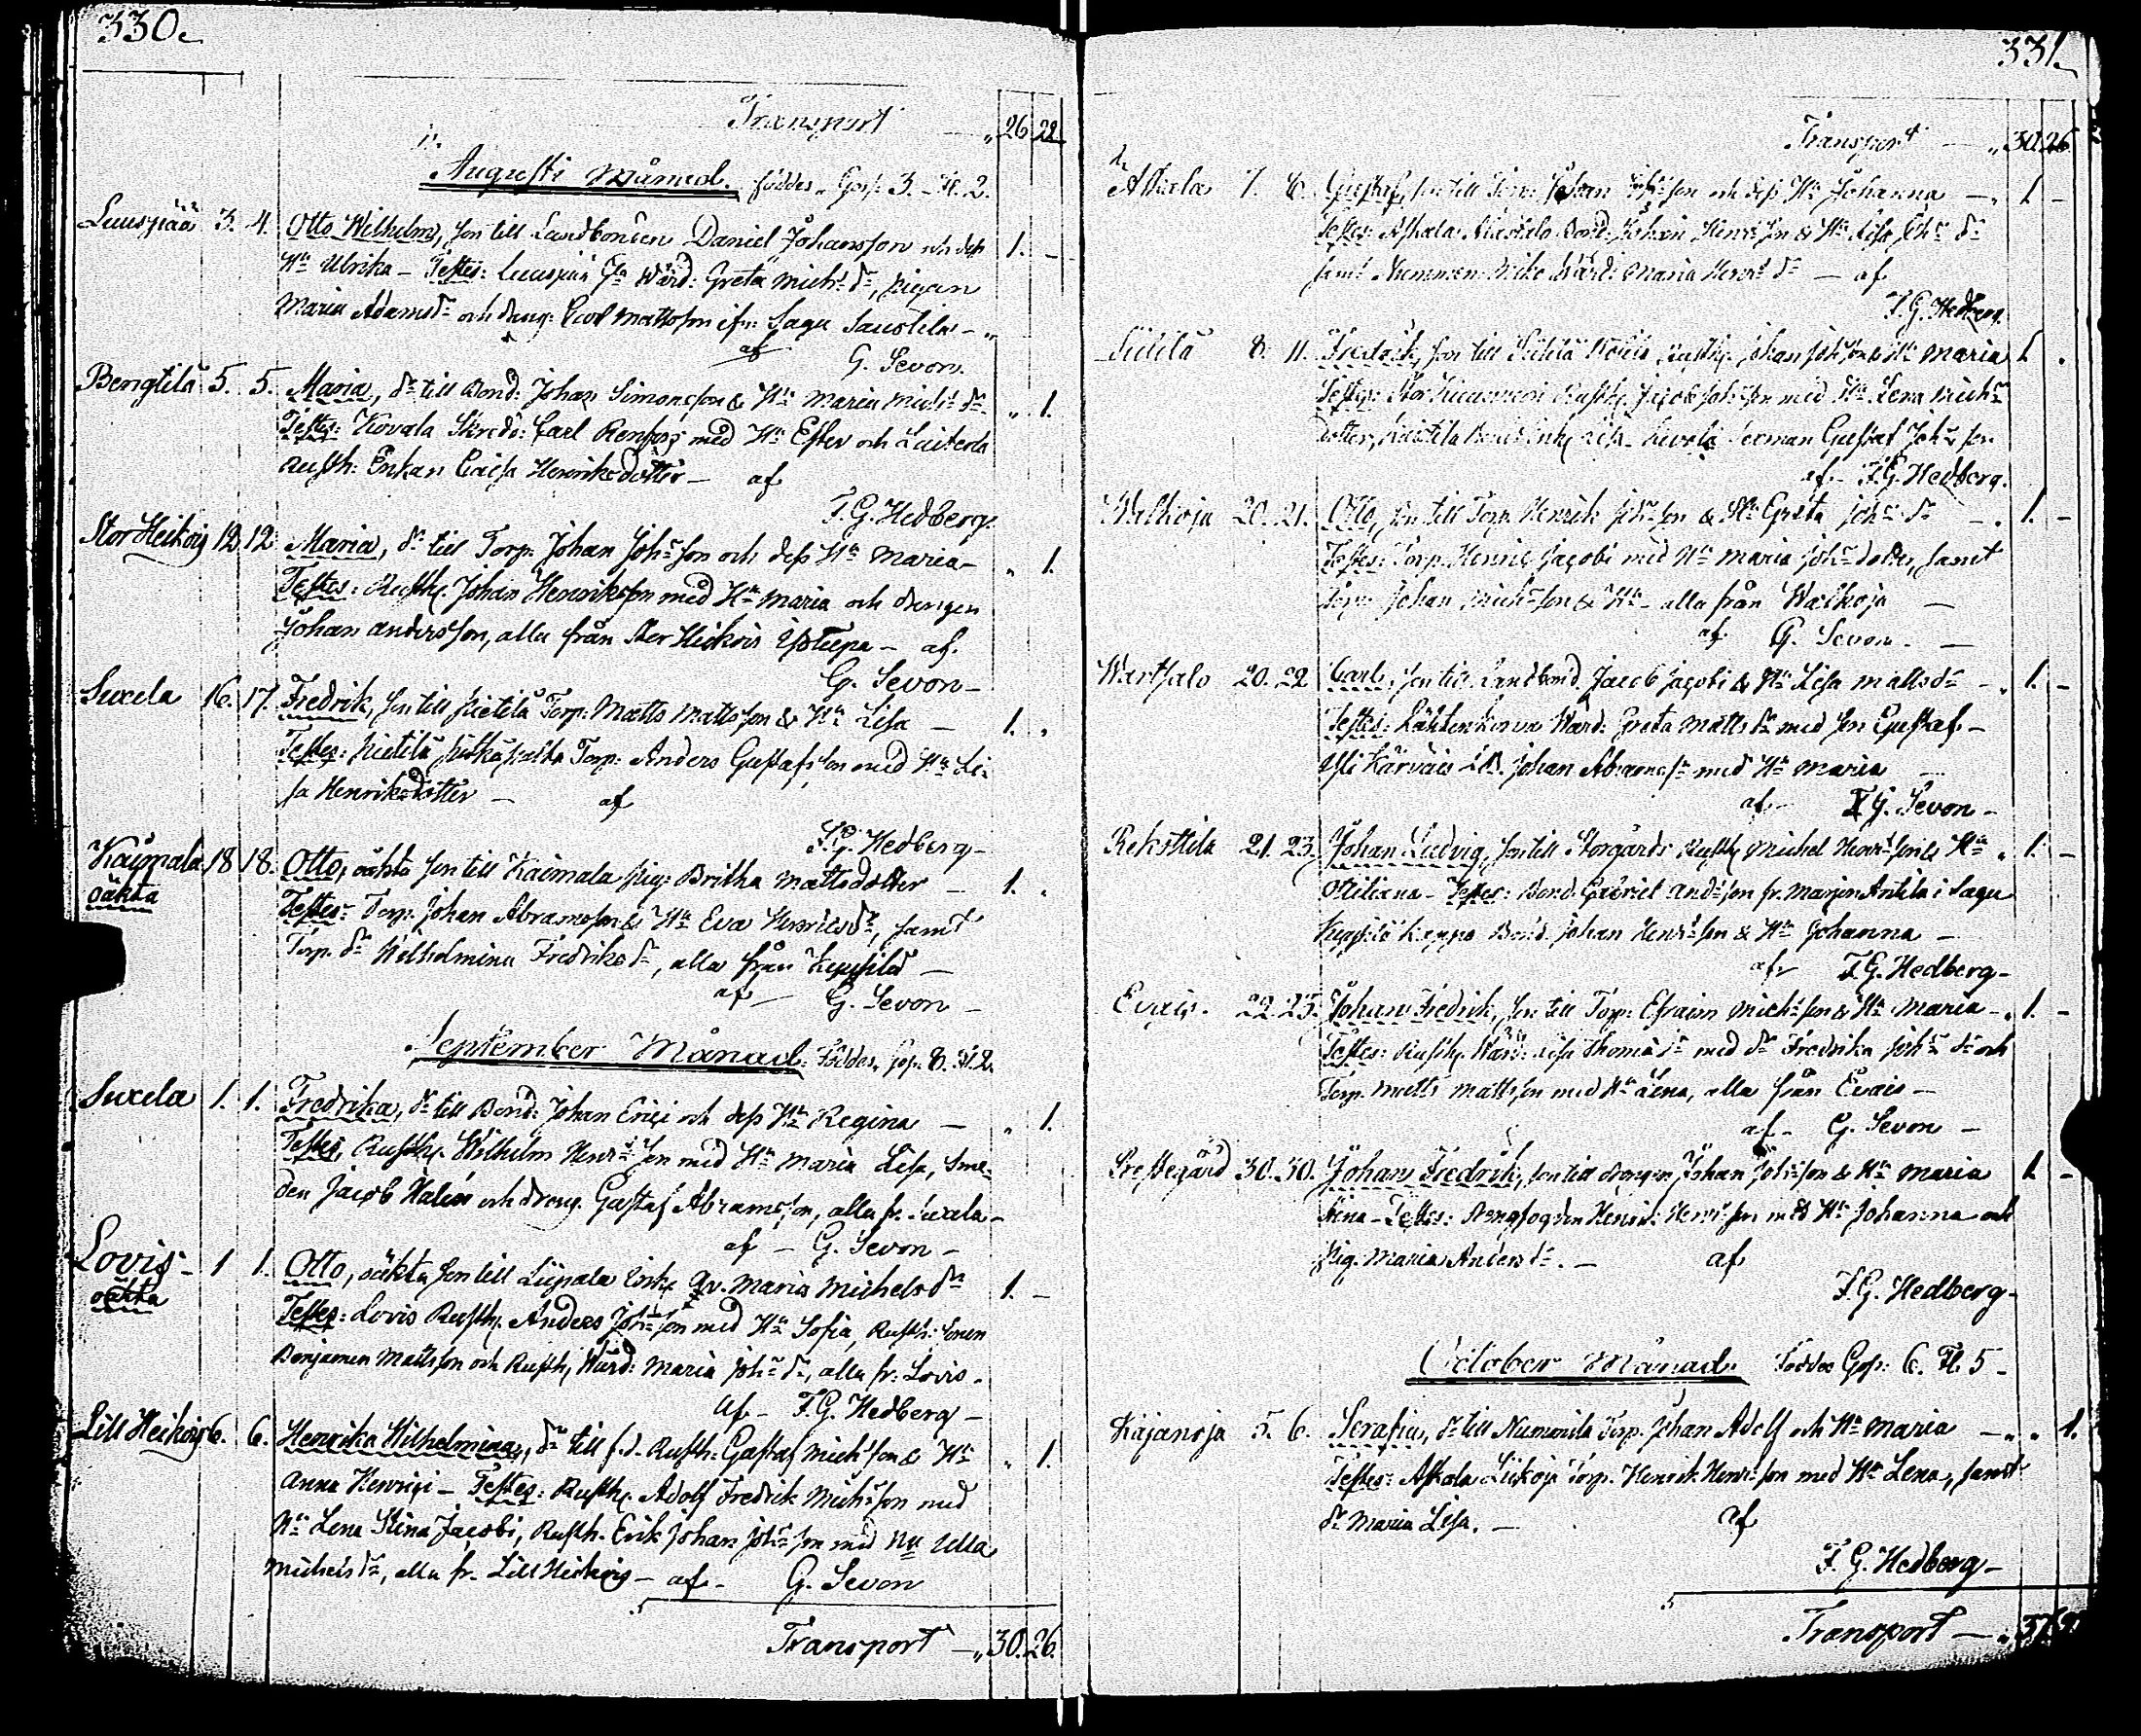 330.
Transport „ 26 22
Augusti Månad. föddes. Goss. 3. Fl. 2.
Luuspää 3. 4. Otto Wilhelm, son till Landbonden Daniel Johansson och dess 1. –
Hu Ulrika – Testes: Luuspää Gla Wärd: Greta Michs dr, pigan
Maria Adamsdr och dreng: Carl Mattsson ifrn Sagu Saustila –
af G. Sevon.
Bengtilä 5. 5. Maria, dr till Bond: Johan Simonsson & Hu Maria Michs dr „ 1.
Testes: Kovala Skrädd: Carl Renfors med Hu Ester och
Rusth: Enkan Caisa Henriksdotter – af
F. G. Hedberg.
Stor Heikois 12 12. Maria, dr till Torp: Johan Johsson och dess Hu Maria – „ 1.
Testes: Rusth. Johan Henriksson med Hu Maria och drengen
Johan Andersson, alla från Stor Heikois Ysteepa – af.
G. Sevon –
Suxela 16. 17. Fredrik, son till Pietilä Torp: Matts Mattsson & Hu Lisa – 1. „
Testes: Pietilä Torp: Anders Gustafsson med Hu Li-
sa Henriksdotter – af
F. G. Hedberg –
Kaimala 18 18. Otto, oäkta son till Kaimala pig: Britha Mattsdotter – 1. „
oäkta Testes: Torp: Johan Abramsson & Hu Eva Henriksdr, samt
Torp. dr Wilhelmina Fredriksdr, alla från Keppilä –
af – G. Sevon –
September Månad. Föddes. Gos. 8. Fl. 2.
Suxela 1. 1. Fredrika, dr till Bond: Johan Erici och dess Hu Regina – „ 1.
Testes, Rusth. Wilhelm Henrsson med Hu Maria Lisa, Sme-
den Jacob Walin och dreng. Gustaf Abramsson, alla fr. Suxela –
af – G. Sevon –
Lovis – 1 1. Otto, oäkta son till Liipola Inh. Qv. Maria Michelsdr 1. –
oäkta Testes: Lovis Rusth. Anders Johsson med Hu Sofia, Rusth: Sonen
Benjamin Mattsson och Rusth, Wärd: Maria Johs dr, alla fr. Lovis.
af – F. G. Hedberg –
Lill Heikois 6. 6. Henrika Wilhelmina, dr till f.d. Rusth: Gustaf Michsson & Hu „ 1.
Anna Henrici – Testes: Rusth. Adolf Fredrik Michsson med
Hu Lena Stina Jacobi, Rusth. Erik Johan Johsson med Hu Ulla
Michels dr, alla fr. Lill Heikois – af – G. Sevon
Transport – „ 30. 26.
331.
Transport – „ 30. 26
Askala 7. 8. Gustaf, son till Torp: Johan Johsson och dess Hu Johanna – „ 1 –
Testes: Askala Bond: Johan Henrsson & Hu Lisa Johs dr
samt Wärd: Maria Henrs dr – af
F. G. Hedberg.
8. 11. Fredrik, son till Rusth. Johan Johsson & Hu Maria 1 .
Testes: Rusth. Jacob Johsson med Hu Lena Michs
dotter, Gustaf Johsson
af – F. G. Hedberg.
Walkoja 20. 21. Otto, son till Torp. Henrik Johsson & Hu Greta Johs dr – „ 1. –
Testes: Torp. Henric Jacobi med Hu Maria Johs dotter, samt
Torp: Johan Michsson & Hu – alla från Walkoja –
af. G. Sevon. –
Wartsalo 20. 22 Carl, son till Landbond. Jacob Jacobi & Hu Lisa Mattsdr – „ 1. –
Testes: Lähtenkorva Wärd: Greta Matts dr med son Gustaf –
Yli Kärväis LB. Johan Abramsson med Hu Maria –
af – G. Sevon –
Reksttila 21. 23. Johan Ludvig, son till Storgårds Rusth. Michel Henrsson & Hu „ 1. –
Otiliana – Testes: Bond. Gabriel Andsson fr. Marjon Antila i Sagu
Bond. Johan Henrsson & Hu Johanna –
af – F. G. Hedberg –
Evais. 22. 25. Johan Fredrik, son till Torp: Efraim Michsson & Hu Maria – „ 1. –
Testes: Rusth. Wärd: Lisa Thomædr med dr Fredrika Johs dr och
Torp. Matts Mattsson med Hu Lena, alla från Evais –
af – G. Sevon –
Prestegård 30. 30. Johan Fredrik, son till drengen Johan Johsson & Hu Maria 1. –
Stina – Testes: Henric Henrsson med Hu Johanna och
Pig. Maria Anders dr. – af
F. G. Hedberg –
October Månad. Föddes Goss. 6. Fl. 5 –
Kajanoja 5. 6. Serafia, dr till Nummila Torp. Johan Adolf och Hu Maria – „ „ 1.
Testes: Askala Liikoja Torp. Henrik Henrsson med Hu Lena, samt
dr Maria Lisa. – af
F. G. Hedberg –
Transport – „ 37